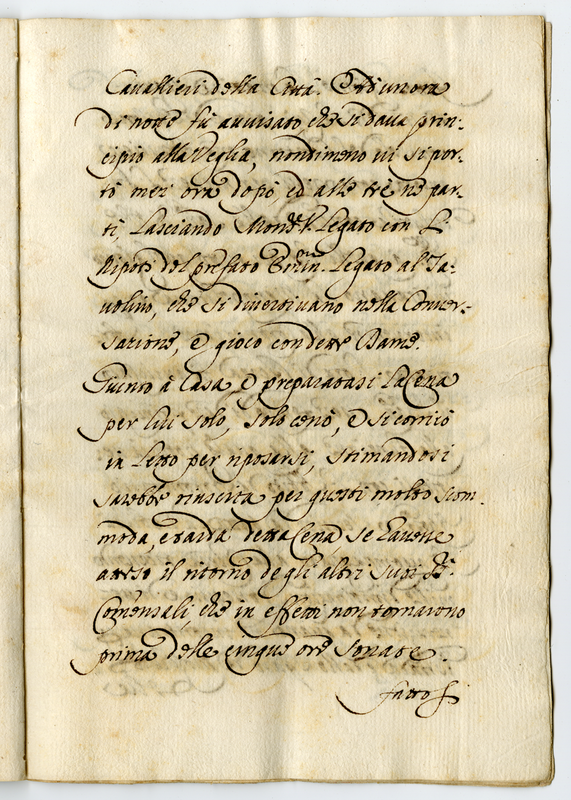 Cavallieri della Città. Ad un ora
di notte fù avvisato, che si dava prin-
cipio alla Veglia, nondimeno ivi si por-
tò mez' ora dopò, ed alle trè ne par-
tì, lasciando Mons.r V. Legato con li
Nipoti del prefato Em.mo Legato al Ta-
volino, che si divertivano nella Conver-
satione, e gioco con dette Dame.
Giunto à Casa, e preparatasi la Cena
per lui solo, solo cenò, e si coricò
in Letto per riposarsi, stimandosi
sarebbe riuscita per questi molto scom-
moda, e tarda detta Cena, se havesse
atteso il ritorno degli altri suoi
Com̃ensali, che in effetti non tornarono
prima delle cinque ore sonate.
fattosi